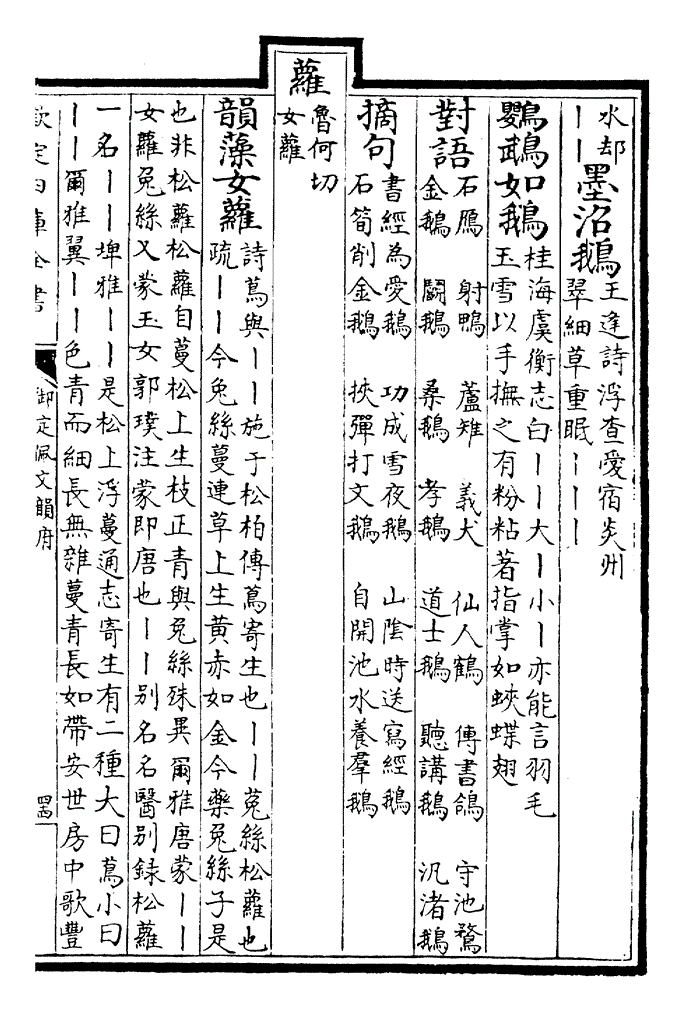 水却
丨丨墨沼鵝王逢詩浮查愛宿炎州
翠細草重眠丨丨丨
鸚䳇如鵝桂海虞衡志白丨丨大丨小丨亦能言羽毛
玉雪以手撫之有粉粘著指掌如蛺蝶翅
對語石鴈 射鴨 蘆雉 義犬 仙人鶴 傳書鴿 守池鶩
金鵝 鬭鵝 桑鵝 孝鵝 道士鵝 聽講鵝 汎渚鵝
摘句書經為愛鵝 功成雪夜鵝 山陰時送寫經鵝
石筍削金鵝 挾彈打文鵝 自開池水養羣鵝
蘿魯何切
女蘿
韻藻女蘿詩蔦與丨丨施于松柏傳蔦寄生也丨丨菟絲松蘿也
疏丨丨今兔絲蔓連草上生黃赤如金今藥兔絲子是
也非松蘿松蘿自蔓松上生枝正青與兔絲殊異爾雅唐蒙丨丨
女蘿兔絲又蒙玉女郭璞注蒙即唐也丨丨别名名醫别錄松蘿
一名丨丨埤雅丨丨是松上浮蔓通志寄生有二種大曰蔦小曰
丨丨爾雅翼丨丨色青而細長無雜蔓青長如帶安世房中歌豐
欽定四庫全書
御定佩文韻府
四